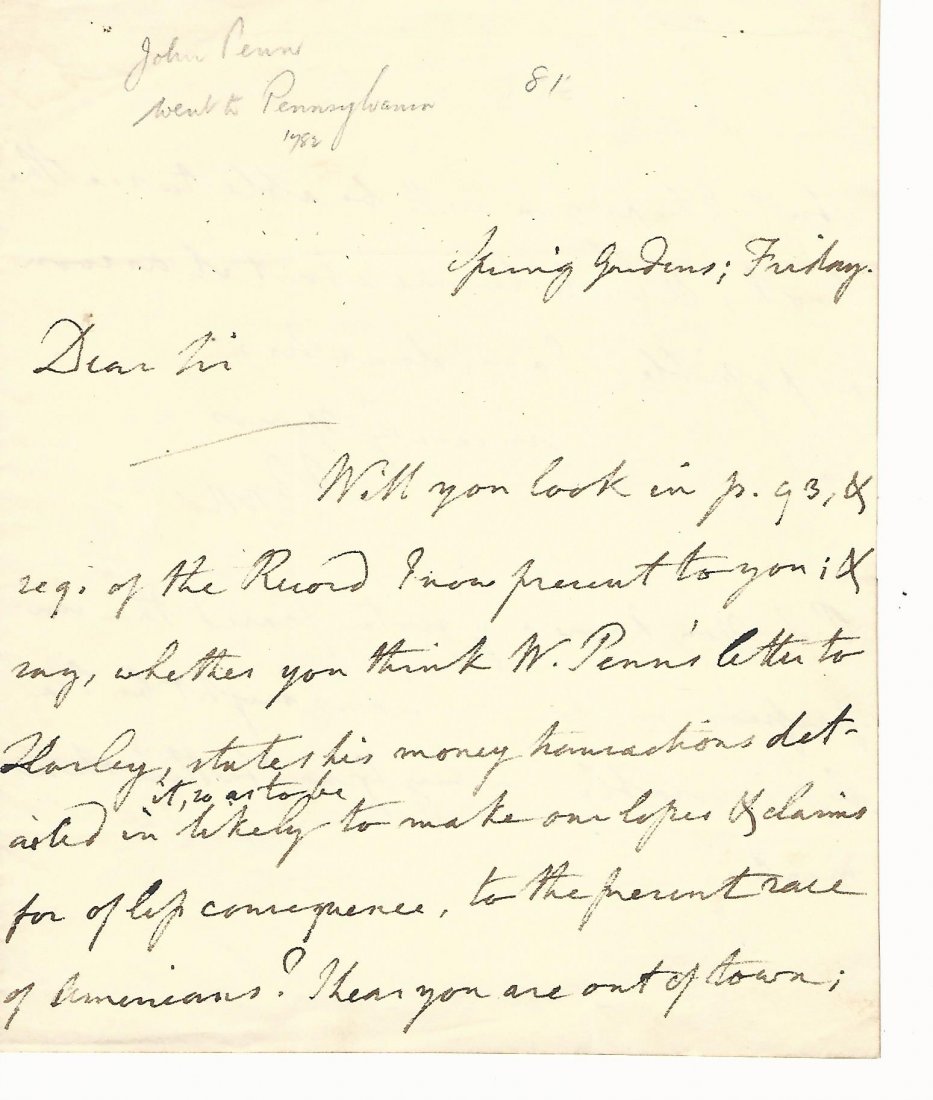 John Penn
went to Pennsylvania
1782
81
Spring Gardens; Friday.
Dear Sir
Will you look in p. 93, &
seq: of the Record I now present to you; &
say, whether you think W. Penn's letter to
Harley, states his money transactions det-
it, so as to be
ailed in likely to make our losses & claims
far of less consequence, to the present race
of Americans? I hear you are out of town;